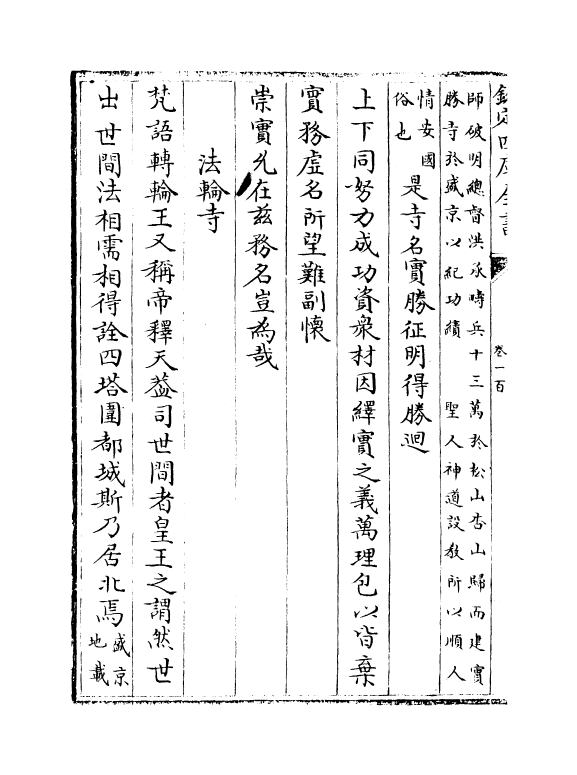 欽定四庫全書
卷一百
師破明總督洪承疇兵十三萬於松山杏山歸而建實
勝寺於盛京以紀功績 聖人神道設教所以順人
情安國
俗也
是寺名實勝征明得勝迴
上下同努力成功資衆材因繹實之義萬理包以皆棄
實務虛名所望難副懷
崇實允在兹務名豈為哉
法輪寺
梵語轉輪王又稱帝釋天葢司世間者皇王之謂然世
出世間法相需相得詮四塔圍都城斯乃居北焉
盛京
地載